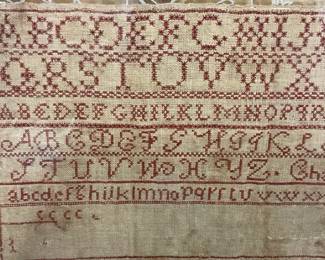 ABCDEFGHIJ
QRSTUVWX
ABCDEFGHIKLMNOPQR
ABCDEFGHIKL
STUVWXYZ. Cha
abcdefghiklmnopqrstuvwxy
cccc